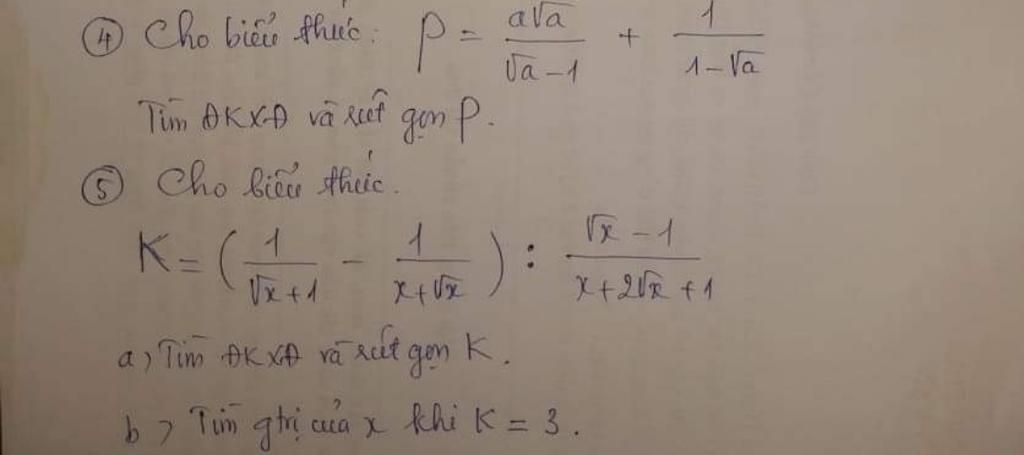 ④ Cho biểu thức: P = a√a / (√a - 1) + 1 / (1 - √a)
Tìm ĐKXĐ và rút gọn P.
⑤ Cho biểu thức.
K = (1 / (√x + 1) - 1 / (x + √x)) : (√x - 1) / (x + 2√x + 1)
a) Tìm ĐKXĐ và rút gọn K.
b) Tìm gtrị của x khi K = 3.